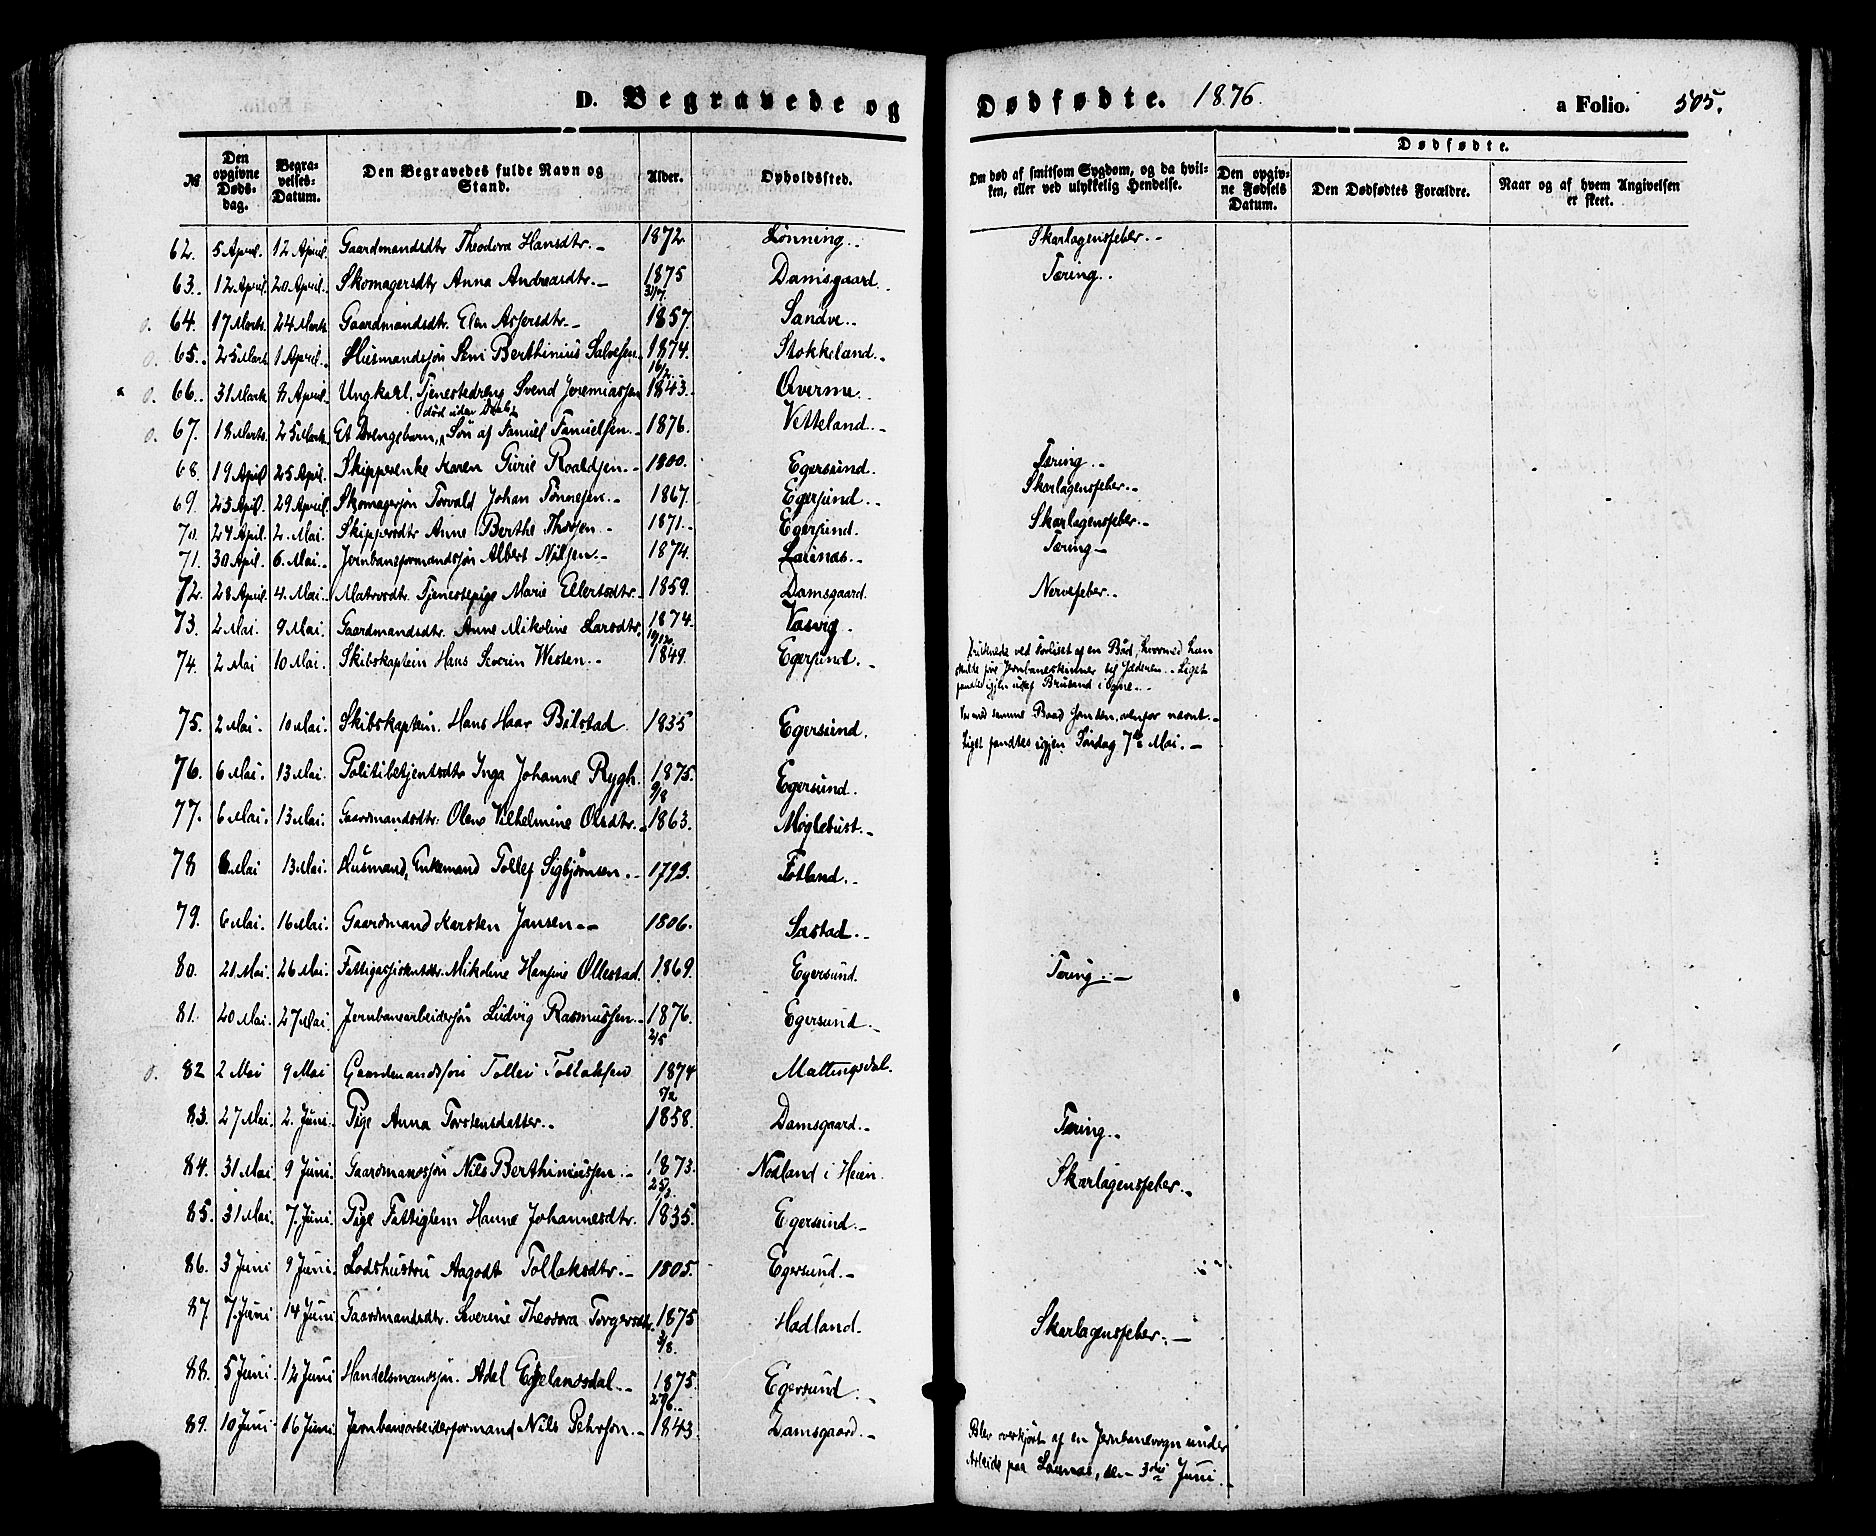 D. Begravede og Dødfødte. 1876. a Folio. 505.
№ Den opgivne Døds-dag. Begra-velses-Datum. Den Begravedes fulde Navn og Stand. Alder. Opholdssted. Om død af smitsom Sygdom, og da hvil-ken, eller ved ulykkelig Hendelse. Dødfødte. Den opgiv-ne Fødsels Datum. Den Dødfødtes Forældre. Naar og af hvem Angivelsen er skeet.
62. 5 April. 12 April. Gaardmandsdtr Theodora Hansdtr.- 1872. Lønning.. Skarlagensfeber.-
63. 12 April. 20 April. Skomagersdtr Anna Andreasdtr.- 1875 Damsgaard. Tæring..
o. 64. 17 Marts. 24 Marts Gaardmandsdtr. Elen Asgersdtr.- 1857. Sandve.-
o. 65. 25 Marts 1 April. Husmandssøn Berthinius Salvesen 1874. 16/2 Stokkeland.-
o. 66. 31 Marts 8 April. Ungkarl, Tjenestedreng Svend Jeremiassen 1843. Qverme..
o. 67. 18 Marts. 25 Marts. Et Drengebarn, død uden Daab, Søn af Samuel Samuelsen.- 1876. Vetteland.-
68. 19 April 25 April. Skipperenke Karen Gurie Roaldsen.- 1800. Egersund. Tæring.-
69. 23 April. 29 April. Skomagersøn Torvald Johan Tønnesen.- 1867. Egersund.. Skarlagensfeber.-
70. 27 April. 2. Mai. Skippersdtr Anne Berthe Thorsen.- 1871.- Egersund. Skarlagensfeber.-
71. 30 April. 6. Mai.- Jernbaneformandssøn Albert Nilsen.- 1874. Launas.- Tæring-
72. 28 April. 4. Mai. Matrosdtr. Tjenestepige Marie Ellertsdtr.- 1859. Damsgaard. Nervefeber.-
73. 2 Mai. 9 Mai. Gaardmandsdtr. Anne Mikoline Larsdtr. 1874. 19/12. Vasvig.
74. 2 Mai 10 Mai. Skibskaptein Hans Severin Westen.- 1849. Egersund.- Druknede ved Forliset af en Baad, hvormed han
skulde føre Jernbaneskinner til Jæderen.. Liget
fandtes igjen udaf Brusand i Ogne.-
75. 2 Mai. 10 Mai. Skibskaptein. Hans Haar Bilstad 1835 Egersund. Var med samme Baad som den ovenfor nævnt.-
Liget fandtes igjen Søndag 7de Mai.-
76. 6 Mai. 13 Mai. Politibetjentsdtr Inga Johanne Rygh. 1875. 9/8 Egersund.
77. 6 Mai. 13 Mai. Gaardmandsdtr. Olene Vilhelmine Olsdtr.- 1863. Møglebust.-
78 6 Mai 13 Mai. Husmand, Enkemand Tollef Sigbjørnsen.- 1793. Fotland.-
79. 6 Mai. 16 Mai. Gaardmand Karsten Jansen.- 1806. Sæstad.-
80. 21 Mai. 26 Mai. Mikoline Hansine Ollestad. 1869. Egersund. Tæring.-
81. 20 Mai. 27 Mai Jernbanearbeidersøn Ludvig Rasmussen.- 1876. 2/5 Egersund.-
o. 82 2 Mai 9 Mai Gaardmandssøn Tollei Tollaksen 1874 7/2 Mattingsdal.
83. 27 Mai. 2. Juni. Pige Anna Torstensdatter.- 1858. Damsgaard.- Tæring.-
84. 31 Mai 9 Juni. Gaardmandssøn Nils Berthiniussen.- 1873. Nodland i Heien. Skarlagensfeber.-
85. 31 Mai. 7. Juni. Pige Fattiglem Hanne Johannesdtr. 1835. Egersund.-
86. 3 Juni 9 Juni. Lodshustru Aagodt Tollaksdtr.- 1805. Egersund.-
87. 7. Juni 14 Juni Gaardmandsdtr. Severine Theodora Torgersdtr. 1875 3/8. Hadland. Skarlagensfeber.-
88. 5 Juni. 12 Juni Handelsmandssøn. Adel Egelandsdal.- 1875. 27/6. Egersund.-
89. 10 Juni 16 Juni Jernbanearbeiderformand Nils Pehrson.- 1843. Damsgaard.- Blev overkjørt af en Jernbanevogn under
Arbeide paa Launas, den 3die Juni.-